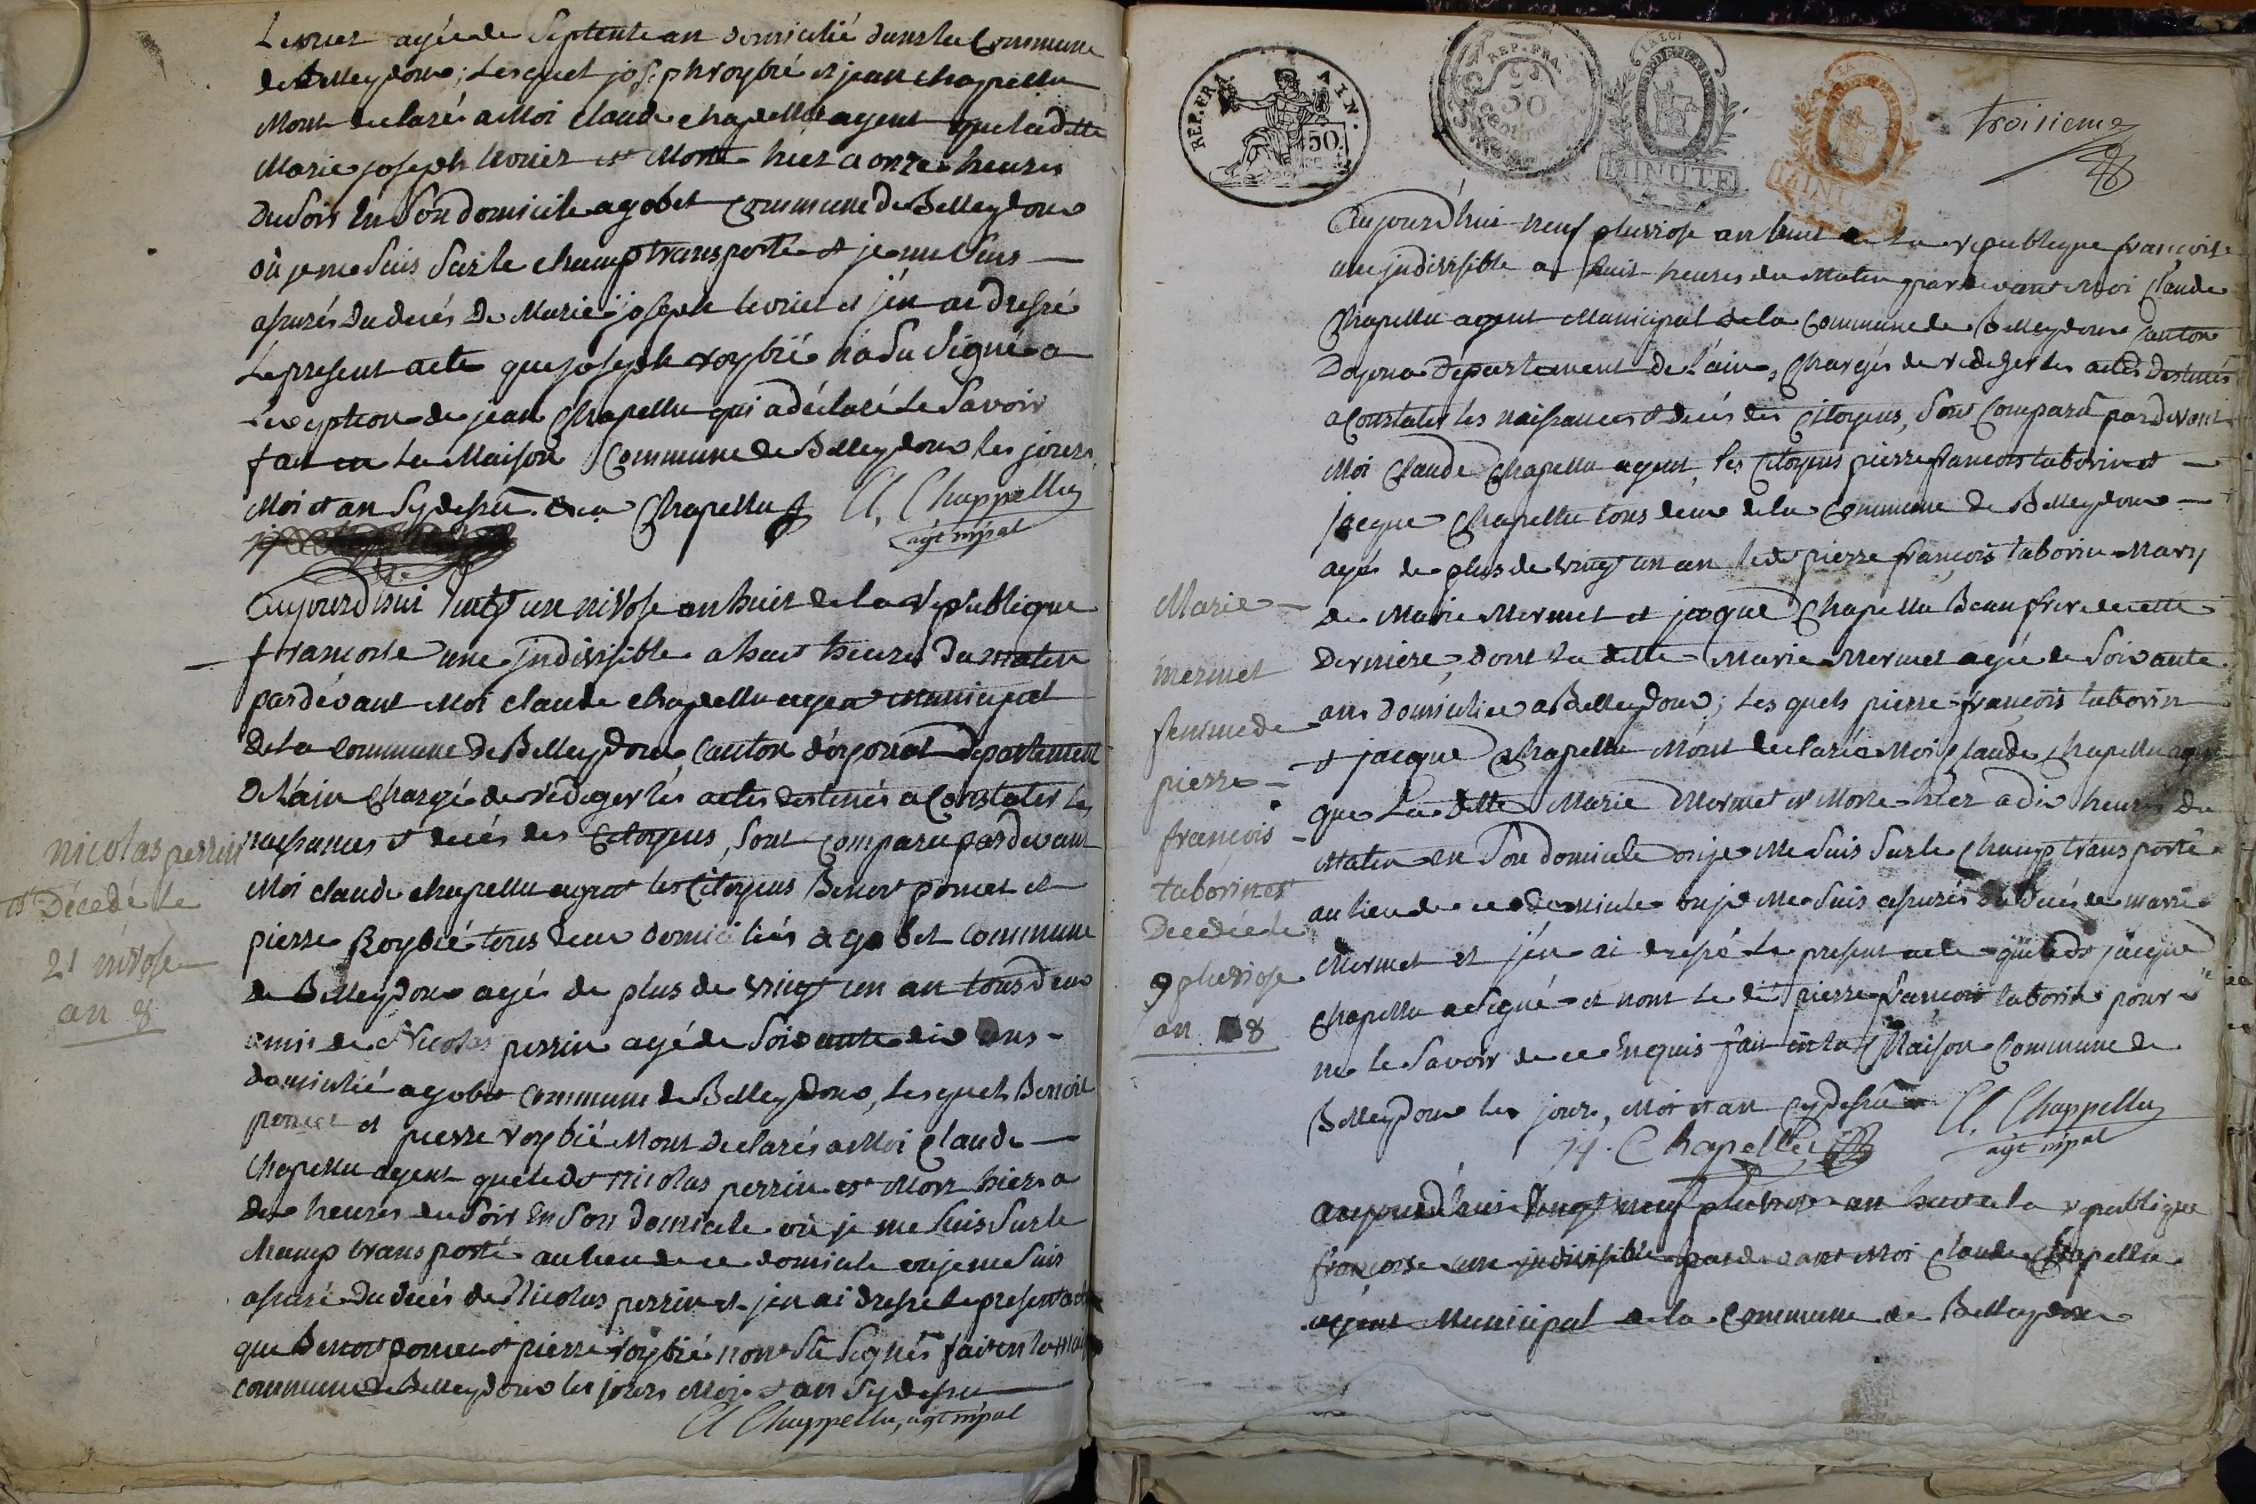 Levrier agée de septente an domicilié dans la Commune
de Belleydoux; Lesquel joseph roybié et jean chapellu
Mont declaré a Moi Claude chapellu agent que ladette
Marie joseph levrier est Morte hier a onze heures
du Soir En Son domicile a gobet Commune de Belleydoux
où je me Suis Sur le champ transporté et je me Suis
assurés du decés De Marie joseph levrier et j'en ai dressé
Le present acte que joseph roybié n'a Su Signé a
L'exeption de jean Chapellu qui a déclaré le Savoir
fait en la Maison Commune de Belleydoux les jours
Moi et an Sydessu. Chapellu Cl. Chappellu
agt mpal
Aujourdhui vingt un nivose an huit de la république
francoise une indivisible a huit heures du matin
pardevant Moi Claude chapellu agent municipal
de la Commune de Belleydoux Canton d'oyonat departement
de L'ain Chargé de rédiger les actes destinés a Constater les
naissances et decés des Citoyens, Sont Comparu pardevant
Moi Claude chapellu agent les Citoyens Benoit poncet et
pierre Roybié tous deux domiciliés a gobet Commune
de Belleydoux agés de plus de vingt un an tous deux
amis de Nicolas perrin agé de Soixante dix ans
domicilié a gobet Commune de Belleydoux, Lesquels Benoit
poncet et pierre roybié Mont Declarés a Moi Claude
Chapellu agent que ledt Nicolas perrin est Mort hier a
dix heures du Soir En Son domicile où je me Suis Sur le
champ transporté au lieu de ce domicile où je me Suis
assuré du decés de Nicolas perrin et j'en ai dressé le present acte
que Benoit poncet et pierre roybié nont Su Signés fait en la
commune de Belleydoux les jours Moi et an Sydessu
Cl Chappellu, agt mpal
nicolas perrin
Décedé le
21 nivose
an 8
REP. FRA. AIN.
50.
REP. FRA.
50
Centimes
LA LOI
MINUTE
MINUTE
troisieme
Aujourd'hui neuf pluviose an huit de la république françoise
une jndivisible a huit heures du Matin pardevant Moi Claude
Chapellu agent Municipal de la Commune de Belleydoux Canton
Doyona Departement de L'ain, Chargés de rediger les actes Destinés
a Constater les naissances et decés des Citoyens, Sont Comparu pardevant
Moi Claude Chapellu agent, les Citoyens pierre francois taborin et
jacque Chapellu tous deux de la Commune de Belleydoux
agé de plus de vingt un an ledt pierre françois taborin Mary
de Marie Mermet et jacque Chapellu Beaufrere de cette
Derniere, dont la dette Marie Mermet agée de Soixante
ans domiciliée a Belleydoux; Les quels pierre françois taborin
et jacque Chapellu Mont declaré a Moi Claude chapellu agent
que La dette Marie Mermet est Morte hier a dix heures du
Matin en Son domicile où je Me Suis Sur le Champ transporté
au lieu de ce domicile où je Me Suis assurés du decés de marie
Mermet et j'en ai dressé le present acte que ledt jacque
Chapellu a Signé et nont le dt pierre françois taborin pour
ne le Savoir de ce Enquis fait en la Maison Commune de
Belleydoux les jours, Moi et an Sydessu Cl. Chappellu
Chapellu agt mpal
Marie
mermet
femme de
pierre
françois
taborin est
Decedée le
9 pluviose
an 8
aujourd'hui vingt neuf pluviose an huit de la republique
françoise une jndivisible pardevant Moi Claude Chapellu
agent Municipal de la Commune de Belleydoux